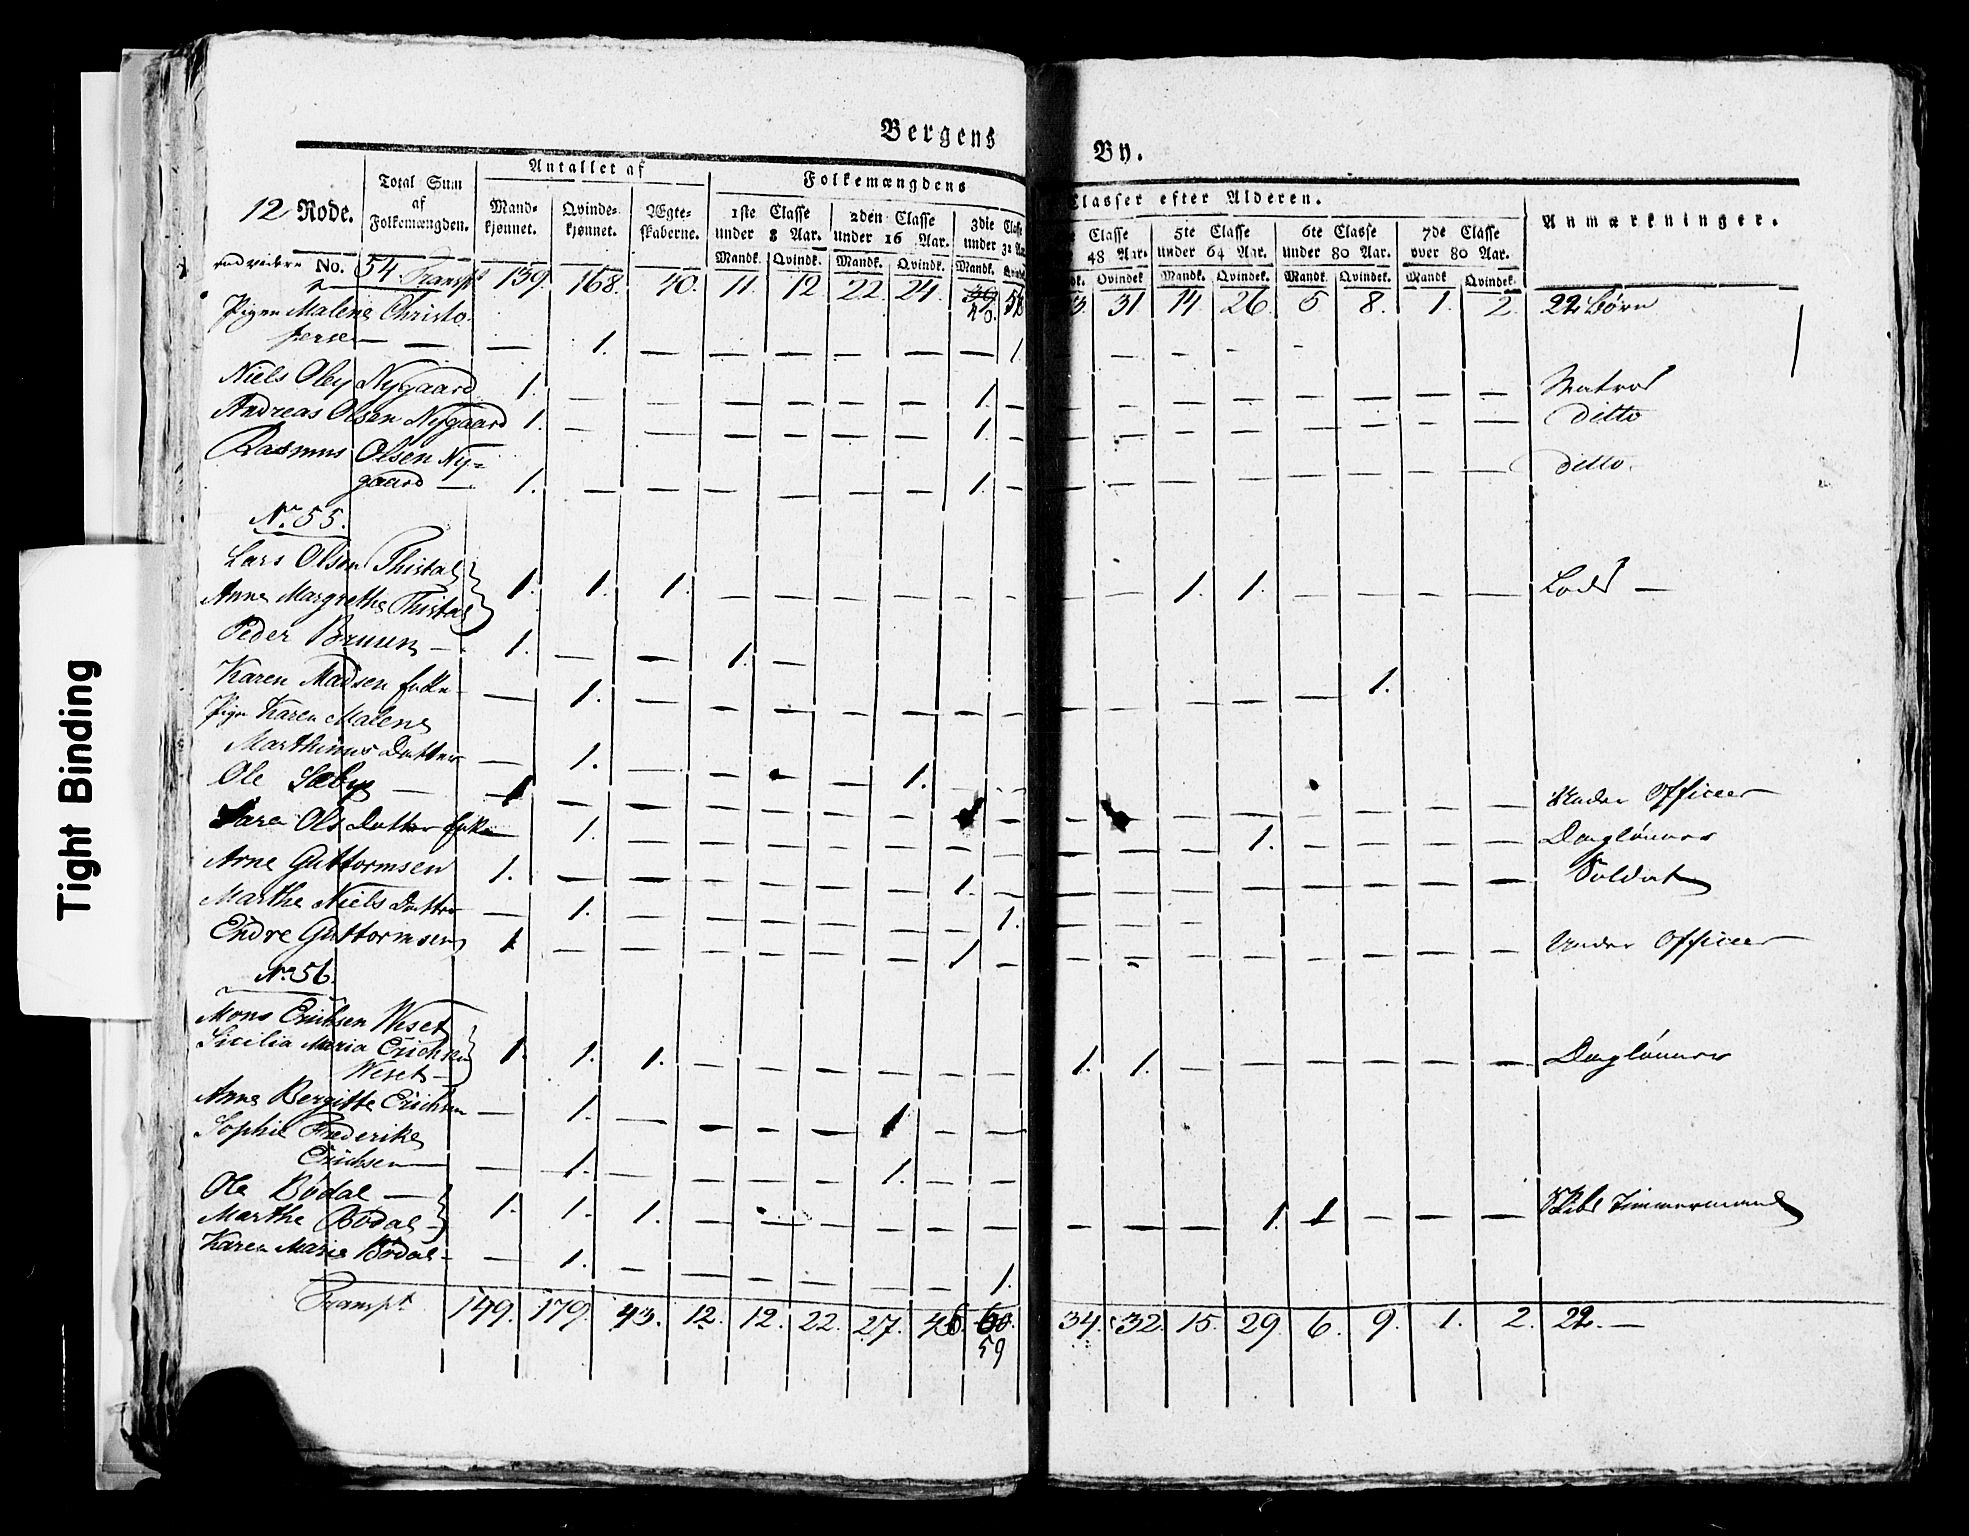 Tight Binding
Bergens By.
12 Rode.
Total Sum af Folkemængden.
Antallet af
Mandkjønnet. Qvindekjønnet. Ægteskaberne.
Folkemængdens Classer efter Alderen.
1ste Classe under 8 Aar. 2den Classe under 16 Aar. 3die Classe under 32 Aar
e Classe 48 Aar. 5te Classe under 64 Aar. 6te Classe under 80 Aar. 7de Classe over 80 Aar.
Mandk. Qvindk. Mandk. Qvindk. Mandk. Qvindk. dk. Qvindek Mandk. Qvindek. Mandk. Qvindek. Mandk Qvindek.
Anmærkninger.
No. 54 Transpt 139. 168. 40. 11. 12. 22. 24. 39 40. 3. 31 14. 26. 5. 8. 1. 2. 22 Børn
Pigen Malene Christo-
fersen — — — 1. — — — — — — 1. — — - -
Niels Olsen Nygaard 1. — — — — — — 1. — — — — — — — — — Matros
Andreas Olsen Nygaard 1. — — — — — — 1. — — — — — — — — — ditto
Rasmus Olsen Ny=
gaard — 1. — — — — — — 1. — — — — — — — — — ditto.
No. 55.
Lars Olsen Thistal
Anne Margrethe Thistal 1. 1. 1. — — — — — — — — 1. 1. — — — — Lods —
Peder Bruun — 1. — — 1. —
Karen Madsen Enke — — 1. — — — — — — — — — 1.
Pigen Karen Malene
Marthinus Datter — 1. — — — — 1. — —
Ole Sæby — 1 — — — — — — — — — — — — — — Under Officeer
Sara Ols Datter Enke — 1. — — — — — — — — — — 1. — — — — Daglønner
Arne Guttormsen 1. — — — — — — 1. — — — — — — — — — Soldat
Marthe Niels Datter — 1. — — — — — — 1. — — —
Endre Guttormsen 1 — — — — — — 1 — — — — — — — — — Under Officeer
No. 56.
Mons Erichsen Weset
Sicilia Maria Erichsen
Weset — 1. 1. 1. — — — — — — 1. 1. — — — — — — Daglønner
Anne Bergitte Erichsen — 1. — — — — 1 — —
Sophie Frederike
Erichsen — — 1. — — — — 1. — —
Ole Bødal —
Marthe Bødal — 1. 1. 1. — — — — — — — — — 1. 1 — — — Skibs Timmermand
Karen Marie Bødal — — 1. — — — — — — 1.
Transpt 149. 179. 43. 12. 12. 22. 27. 46. 60. 34. 32. 15. 29. 6. 9. 1. 2. 22. —
59